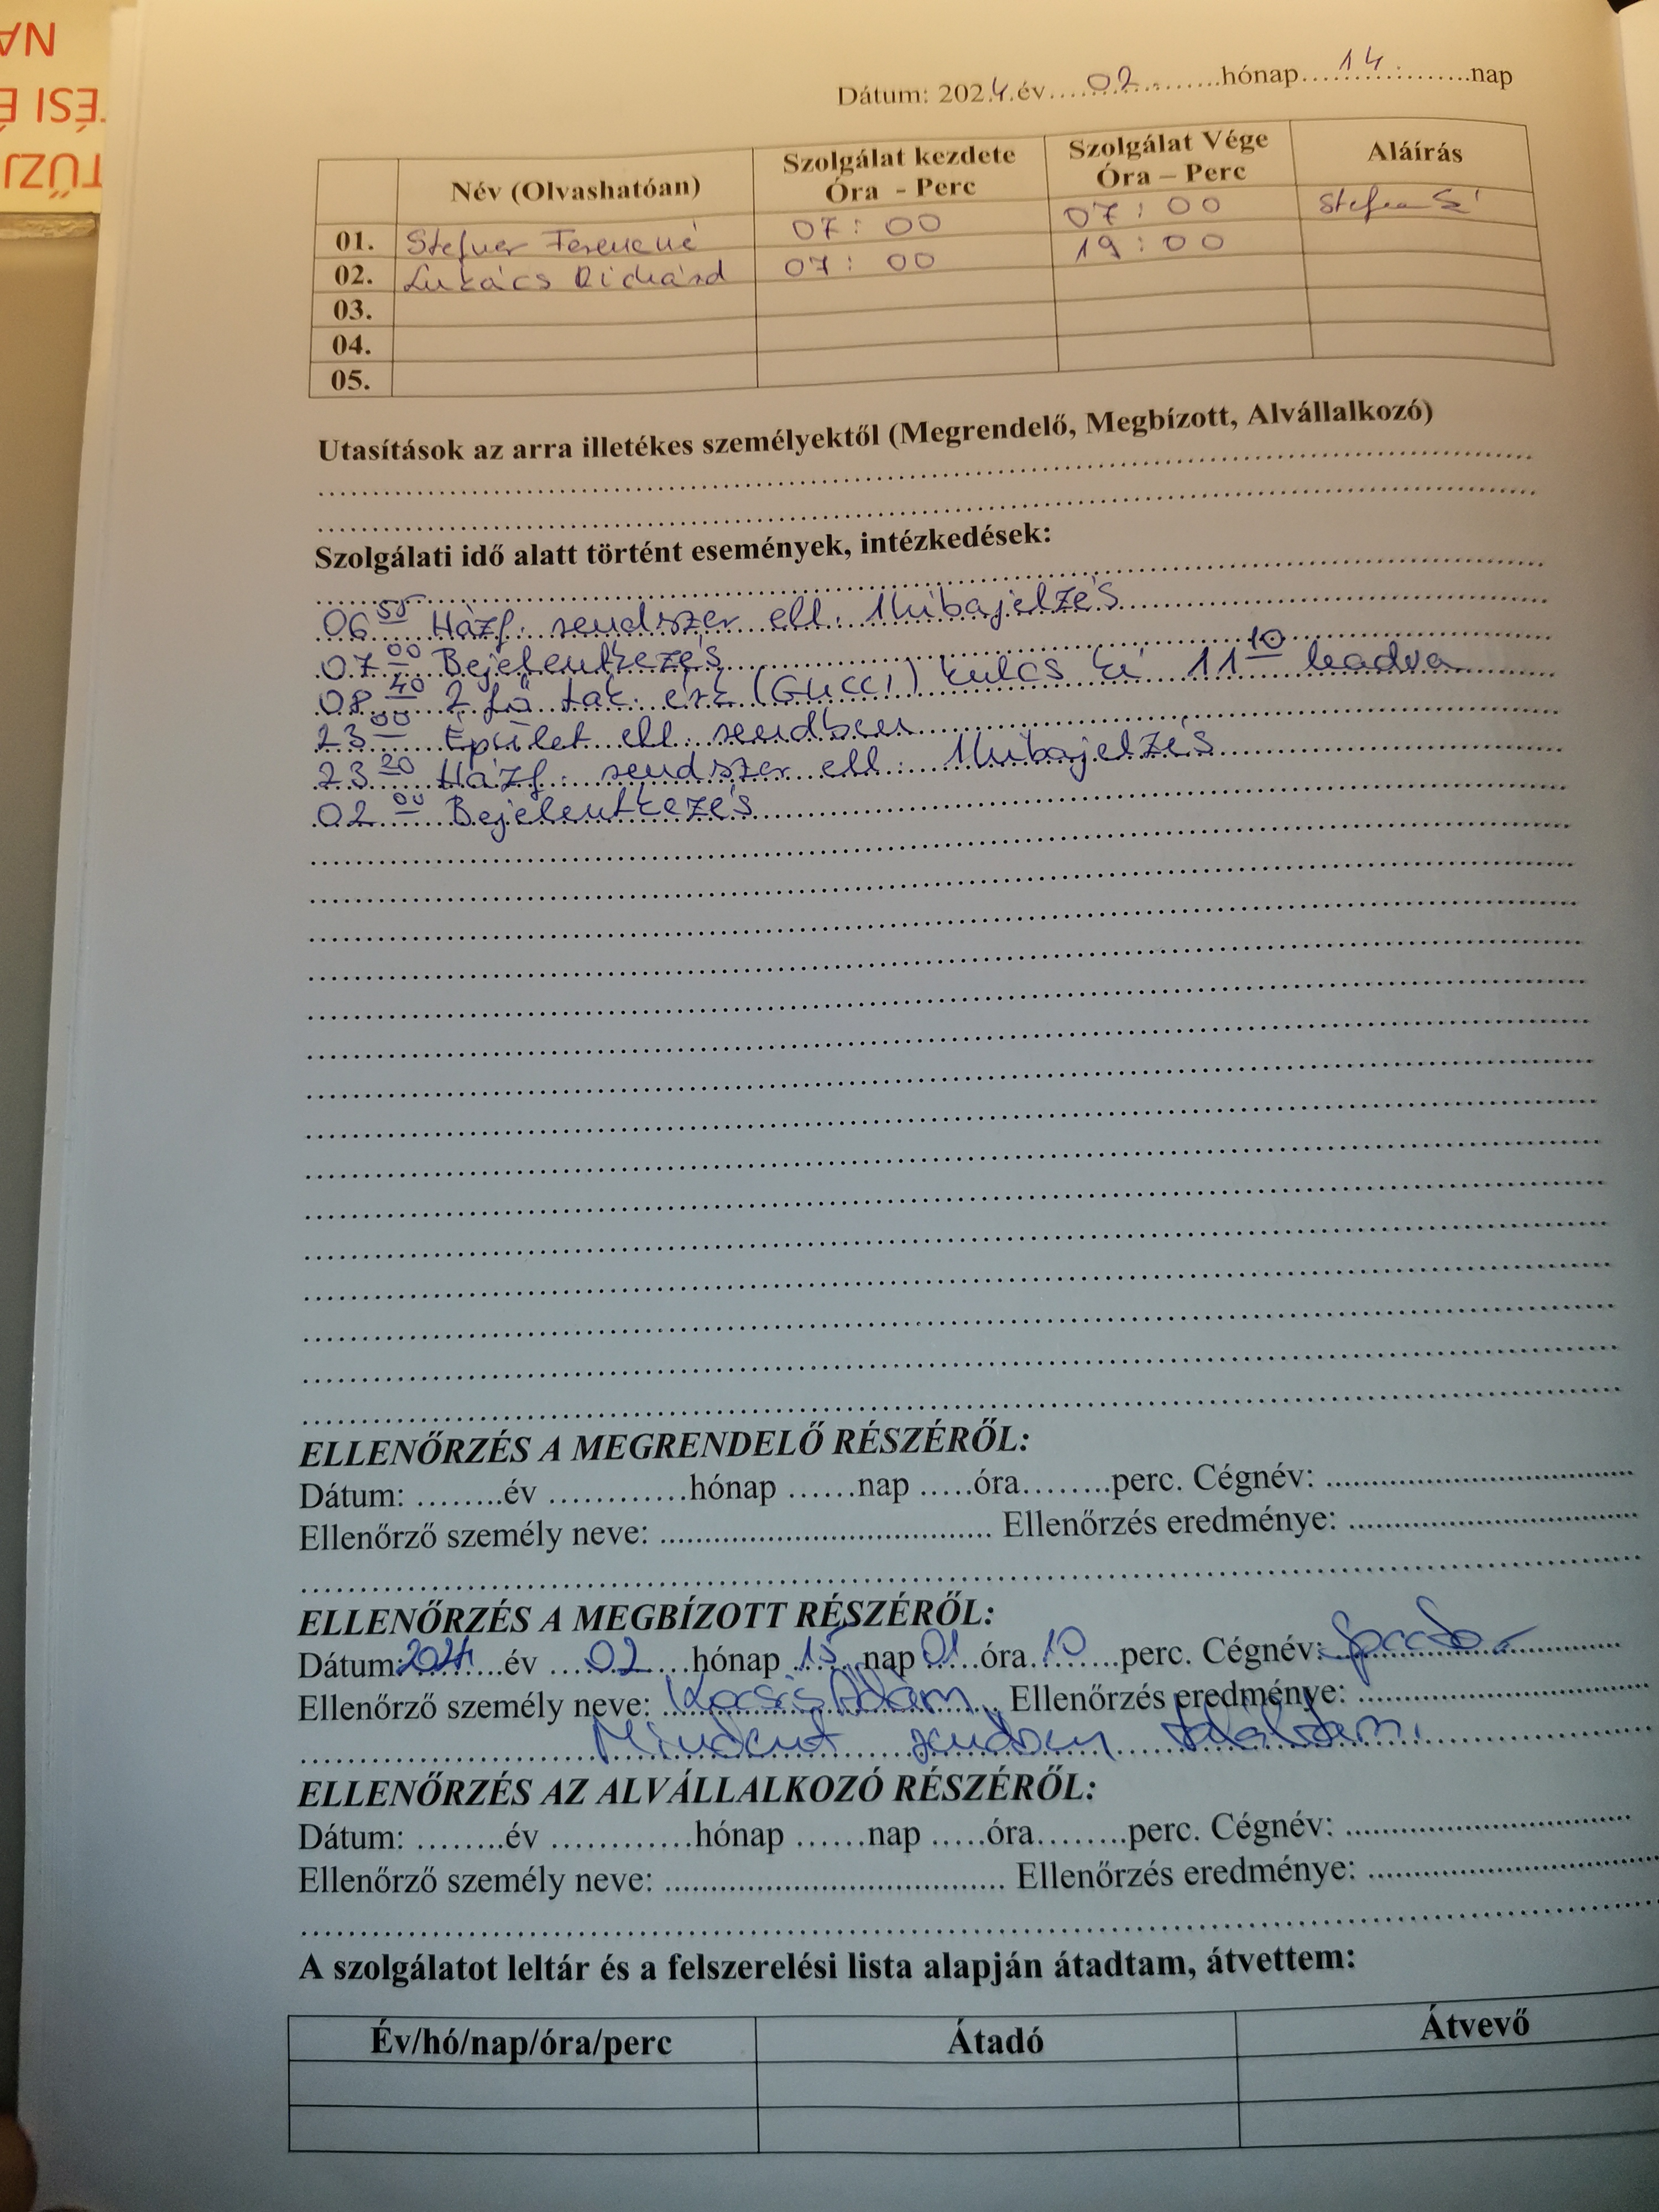 NA
TÉSI É
TŰZJ
Dátum: 2024.év....02.........hónap....14..........nap
Név (Olvashatóan) Szolgálat kezdete Óra - Perc Szolgálat Vége Óra – Perc Aláírás
01. Stefner Ferencné 07:00 07:00
02. Lukács Richárd 07:00 19:00
03.
04.
05.
Utasítások az arra illetékes személyektől (Megrendelő, Megbízott, Alvállalkozó)
Szolgálati idő alatt történt események, intézkedések:
06 55 Házf. rendszer ell. 1 hibajelzés
07 00 Bejelentkezés
08 40 2 fő tak. érk (Gucci) kulcs ki 11 10 leadva
23 00 Épület ell. rendben
23 20 Házf. rendszer ell. 1 hibajelzés
02 00 Bejelentkezés
ELLENŐRZÉS A MEGRENDELŐ RÉSZÉRŐL:
Dátum: ........év ............hónap ......nap .....óra........perc. Cégnév: ....................
Ellenőrző személy neve: .................... Ellenőrzés eredménye: ....................
ELLENŐRZÉS A MEGBÍZOTT RÉSZÉRŐL:
Dátum: 2024 év 02 hónap 15 nap 01 óra 10 perc. Cégnév:
Ellenőrző személy neve: Kocsis Ádám Ellenőrzés eredménye:
Mindent rendben találtam.
ELLENŐRZÉS AZ ALVÁLLALKOZÓ RÉSZÉRŐL:
Dátum: ........év ............hónap ......nap .....óra........perc. Cégnév: ....................
Ellenőrző személy neve: .................... Ellenőrzés eredménye: ....................
A szolgálatot leltár és a felszerelési lista alapján átadtam, átvettem:
Év/hó/nap/óra/perc Átadó Átvevő